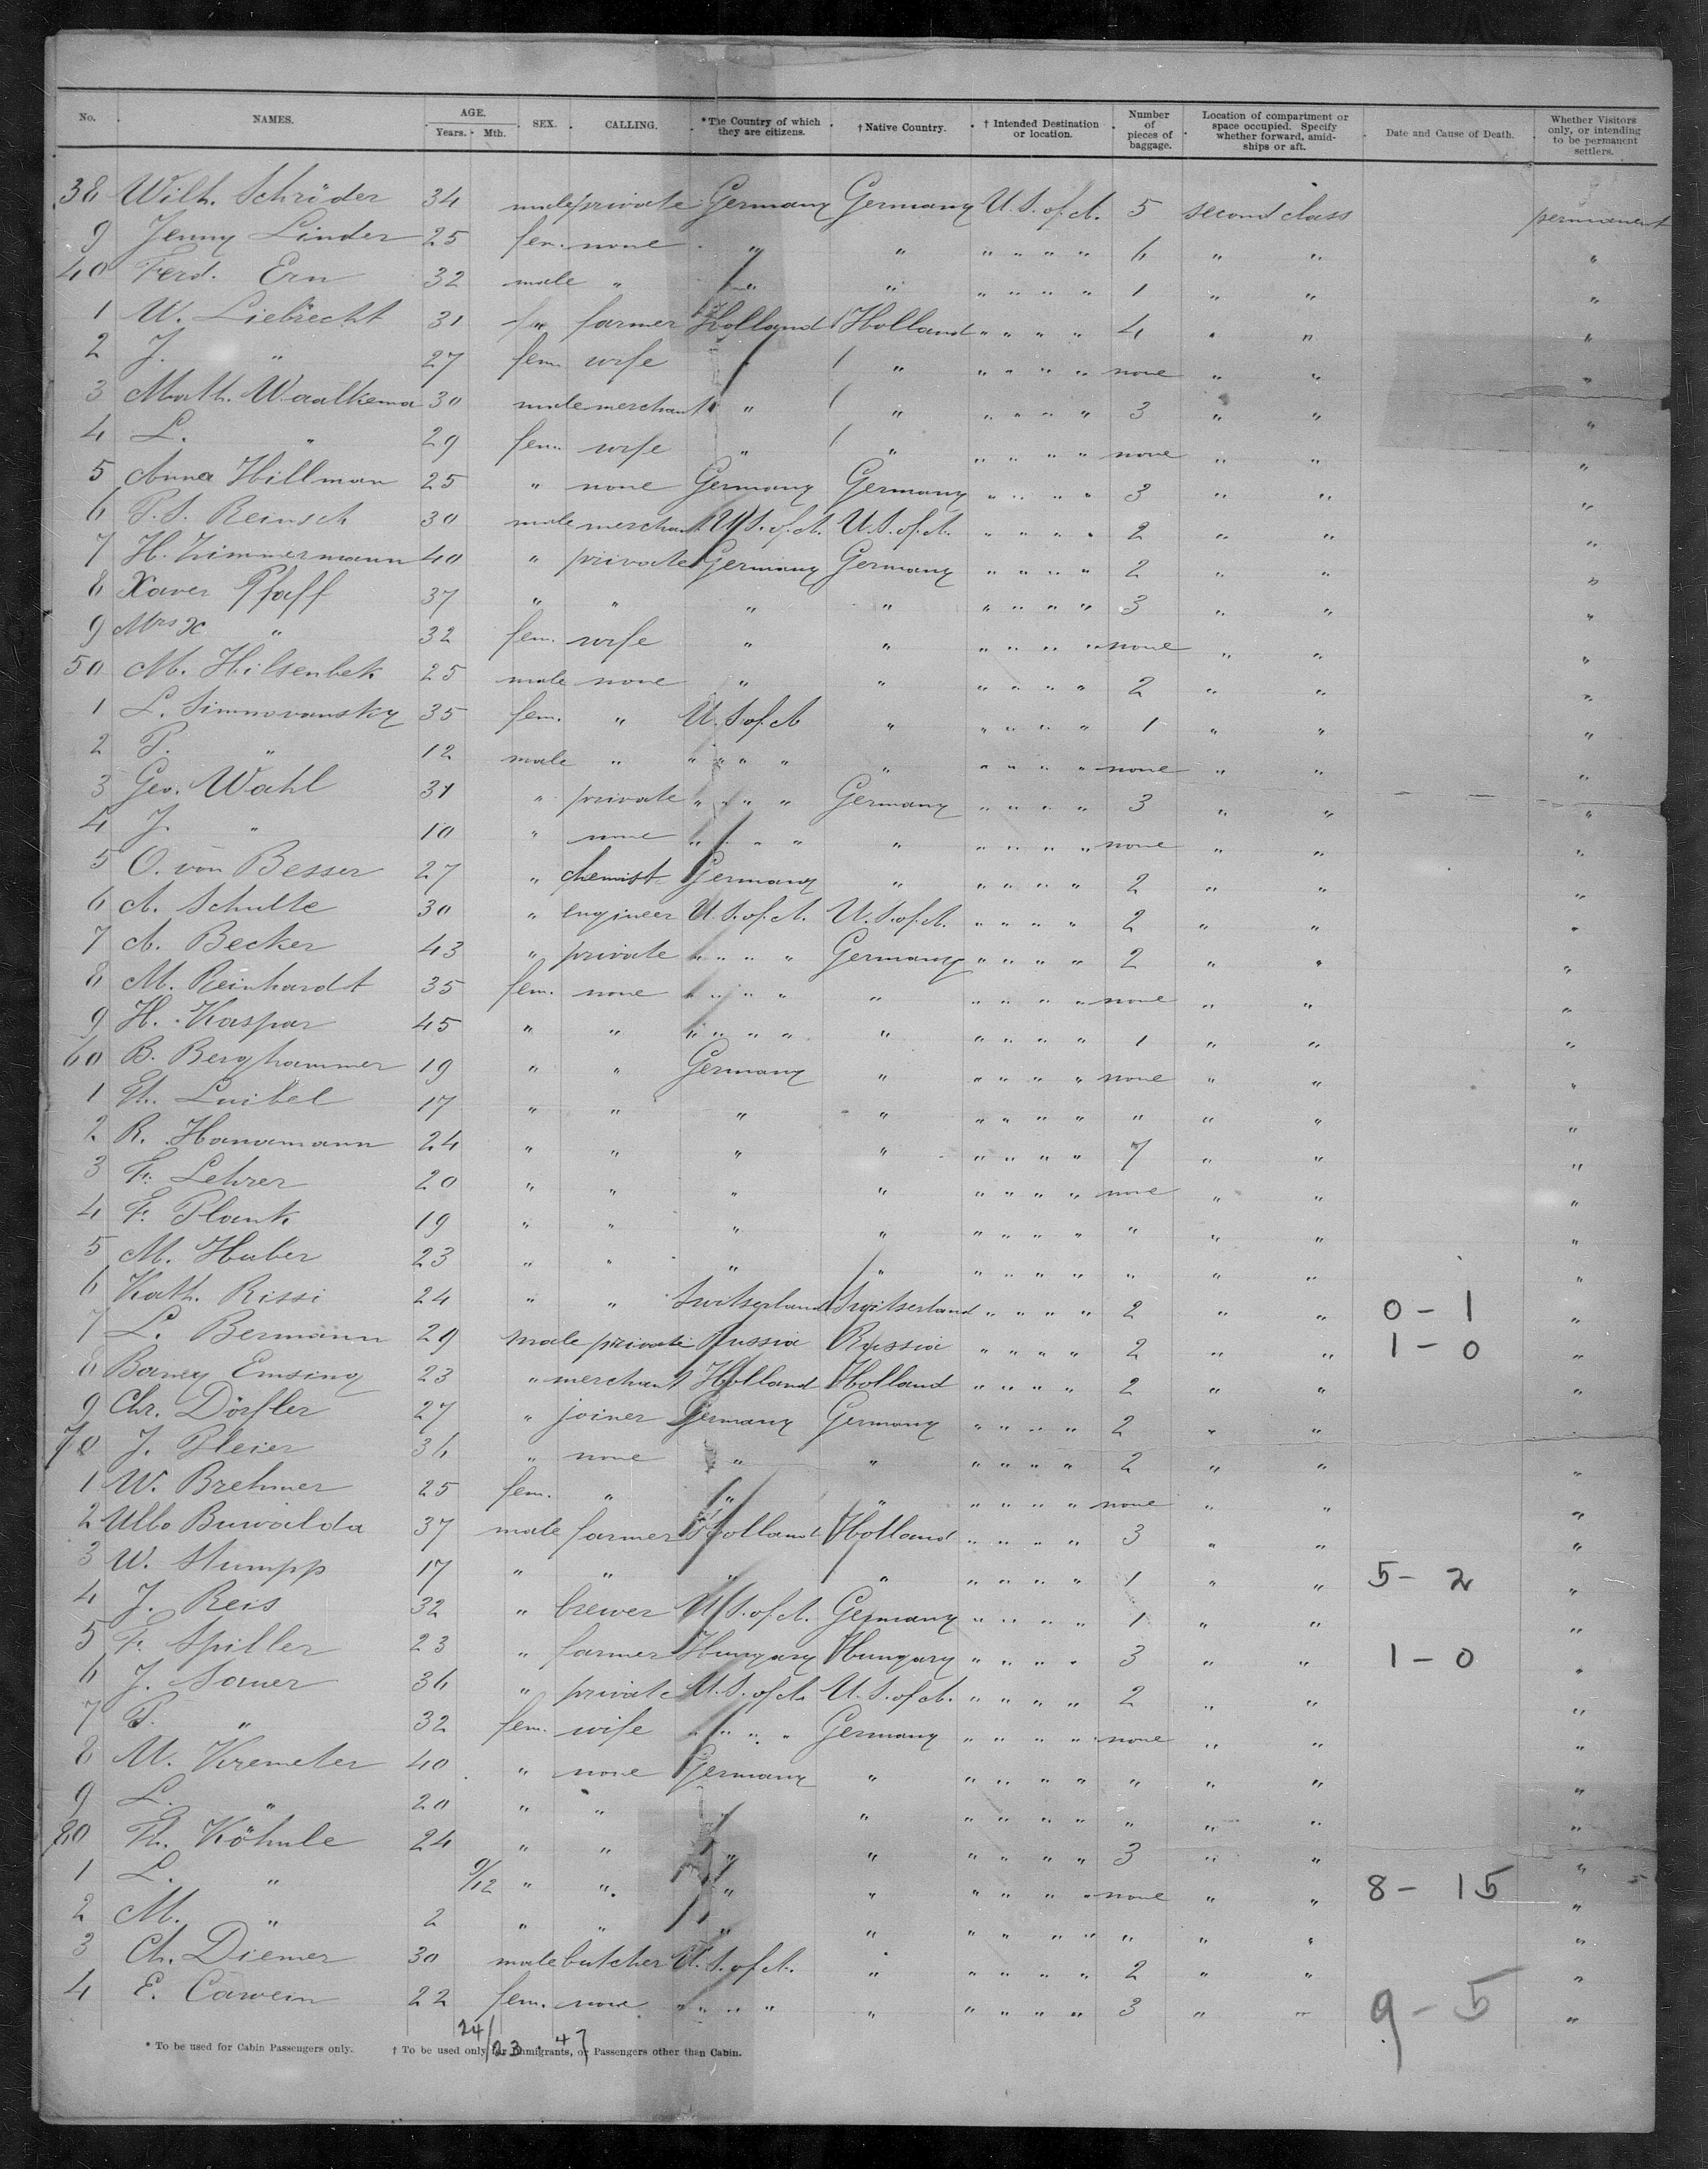 No. NAMES. AGE. Years. Mth. SEX. CALLING. *The Country of which they are citizens. † Native Country. † Intended Destination or location. Number of pieces of baggage. Location of compartment or space occupied. Specify whether forward, amidships or aft. Date and Cause of Death. Whether Visitors only, or intending to be permanent settlers.
38 Wilh. Schröder 34 male private Germany Germany U.S. of A. 5 second class permanent
9 Jenny Linder 25 fem. none " " " " " " 6 " " "
40 Ferd. Ern 32 male " " " " " " " 1 " " "
1 W. Liebrecht 31 " farmer Holland Holland " " " " 4 " " "
2 J. " 27 fem. wife " " " " " " none " " "
3 Math. Waalkema 30 male merchant " " " " " " 3 " " "
4 L. " 29 fem. wife " " " " " " none " " "
5 Anna Hillman 25 " none Germany Germany " " " " 3 " " "
6 P.S. Reinsch 30 male merchant U.S. of A. U.S. of A. " " " " 2 " " "
7 H. Zimmermann 40 " private Germany Germany " " " " 2 " " "
8 Xaver Pfaff 37 " " " " " " " " 3 " " "
9 Mrs X " 32 fem. wife " " " " " " none " " "
50 M. Hilsenbek 25 male none " " " " " " 2 " " "
1 L. Simnovansky 35 fem. " U.S. of A " " " " " 1 " " "
2 P. " 12 male " " " " " " " " " " none " " "
3 Geo. Wahl 31 " private " " " " Germany " " " " 3 " " "
4 J. " 10 " none " " " " " " " " " none " " "
5 O. von Besser 27 " chemist Germany " " " " " 2 " " "
6 A. Schulte 30 " engineer U.S. of A. U.S. of A. " " " " 2 " " "
7 A. Becker 43 " private " " " " Germany " " " " 2 " " "
8 M. Reinhardt 35 fem. none " " " " " " " " " none " " "
9 H. Kaspar 45 " " " " " " " " " " " 1 " " "
60 B. Berghammer 19 " " Germany " " " " " none " " "
1 Th. Luibel 17 " " " " " " " " " " " "
2 R. Hanamann 24 " " " " " " " " 7 " " "
3 F. Lehrer 20 " " " " " " " " none " " "
4 F. Plank 19 " " " " " " " " " " " "
5 M. Huber 23 " " " " " " " " " " " "
6 Kath. Rissi 24 " " Switserland Switserland " " " " 2 " " 0 - 1 "
7 L. Bermann 29 male private Russia Russia " " " " 2 " " 1 - 0 "
8 Barney Emsing 23 " merchant Holland Holland " " " " 2 " " "
9 Chr. Dörfler 27 " joiner Germany Germany " " " " 2 " "
70 J. Pleier 36 " none " " " " " " 2 " " "
1 W. Brehmer 25 fem. " " " " " " " none " " "
2 Ulbo Buwalda 37 male farmer Holland Holland " " " " 3 " " "
3 W. Stumpp 17 " " " " " " " " 1 " " 5 - 2 "
4 J. Reis 32 " brewer U.S. of A. Germany " " " " 1 " " "
5 F. Spiller 23 " farmer Hungary Hungary " " " " 3 " " 1 - 0 "
6 J. Sauer 36 " private U.S. of A. U.S. of A. " " " " 2 " " "
7 P. " 32 fem. wife " " " " Germany " " " " none " " "
8 M. Kremeter 40 " none Germany " " " " " " " " "
9 L. " 20 " " " " " " " " " " " "
80 Th. Köhnle 24 " " " " " " " " 3 " " "
1 L. " 9/12 " " " " " " " " none " " 8 - 15 "
2 M. " 2 " " " " " " " " " " " "
3 Ch. Diemer 30 male butcher U.S. of A. " " " " " 2 " " "
4 E. Cawein 22 fem. none " " " " " " " " " 3 " " 9 - 5 "
24/23 47
* To be used for Cabin Passengers only. † To be used only for Immigrants, or Passengers other than Cabin.